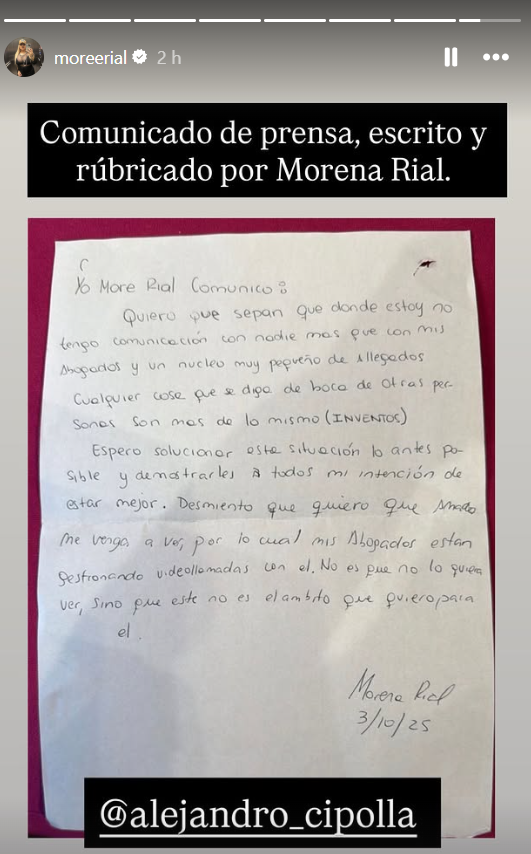 moreerial 2 h
Comunicado de prensa, escrito y
rúbricado por Morena Rial.
Yo More Rial Comunico:
Quiero que sepan que donde estoy no
tengo comunicación con nadie mas que con mis
Abogados y un nucleo muy pequeño de Allegados
Cualquier cosa que se diga de boca de otras per
sonas son mas de lo mismo (INVENTOS)
Espero solucionar esta situación lo antes po-
sible y demostrarles a todos mi intención de
estar mejor. Desmiento que quiero que Amado
me venga a ver, por lo cual mis Abogados estan
gestionando videollamadas con el. No es que no lo quiera
ver, sino que este no es el ambito que quiero para
el.
Morena Rial
3/10/25
@alejandro_cipolla